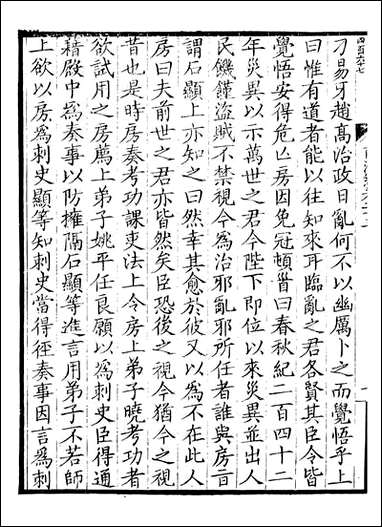 刁易牙趙髙治政日亂何不以幽厲卜之而覺悟乎上
曰惟有道者能以往知來耳臨亂之君各賢其臣令皆
覺悟安得危亡房因免冠頓首曰春秋紀二百四十二
年災異以示萬世之君今陛下即位以來災異並出人
民饑疫盜賊不禁視今為治邪亂邪所任者誰與房
謂石顯上亦知之曰然幸其愈於彼又以為不在此人
房曰夫前世之君亦皆然矣臣恐後之視今猶今之視
昔也是時房奏考功課吏法上令房上弟子曉考功者
欲試用之房薦上弟子姚平任良願以為刺史臣得通
籍殿中為奏事以防擁隔石顯等進言用弟子不若師
上欲以房為刺史顯等知刺史當得徑奏事因言為刺